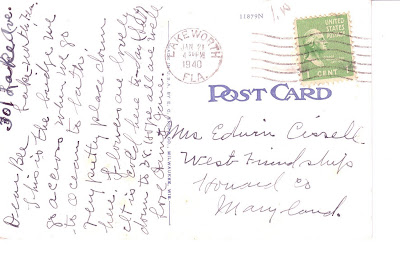 301 Lake Ave.
Lake Worth Fla.
Dear Bee
This is the bridge we
go across when we go
to ocean to bathe.
Very pretty place down
here. Flowers are lovely
It is cold here to-day
down to 38. Hope all are well
Love
11879N
LAKE WORTH
JAN 28
1940
FLA.
UNITED STATES
POSTAGE
1 CENT
POST CARD
Mrs Edwin Cissell
West Friendship
Howard Co
Maryland.